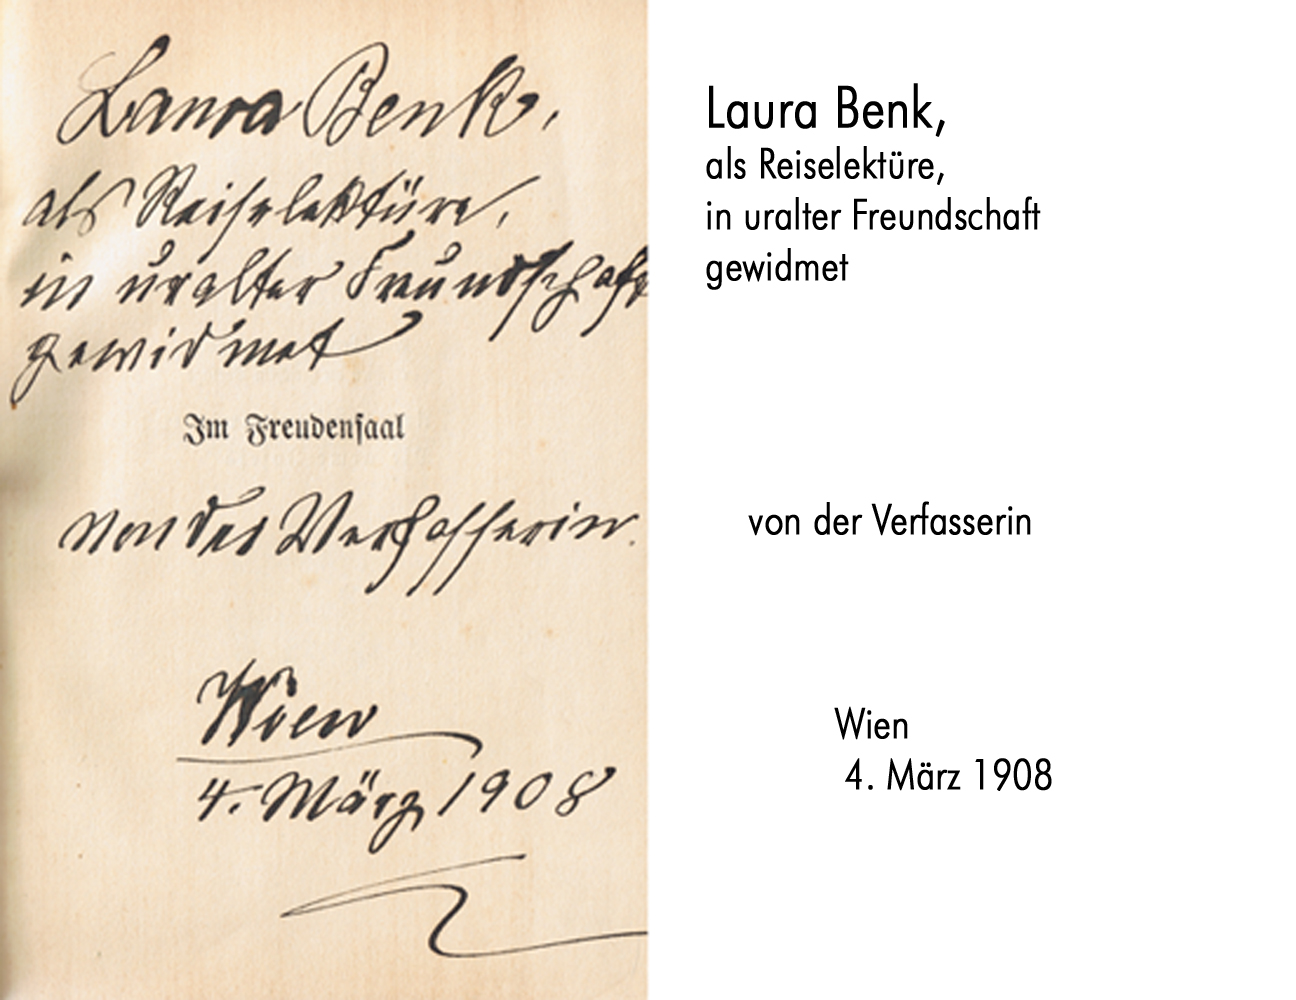 Laura Benk,
als Reiselektüre,
in uralter Freundschaft
gewidmet
Im Freudensaal
von der Verfasserin.
Wien
4. März 1908
Laura Benk,
als Reiselektüre,
in uralter Freundschaft
gewidmet
von der Verfasserin
Wien
4. März 1908